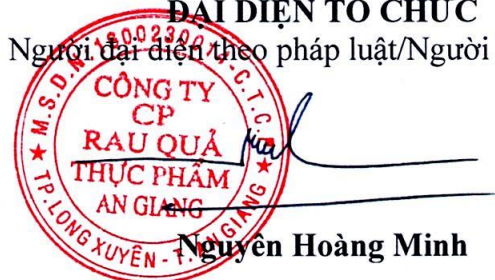 ĐẠI DIỆN TỔ CHỨC
Người đại diện theo pháp luật/Người
CÔNG TY
CP
RAU QUẢ
THỰC PHẨM
AN GIANG
TP. LONG XUYÊN - T. AN GIANG
Nguyễn Hoàng Minh